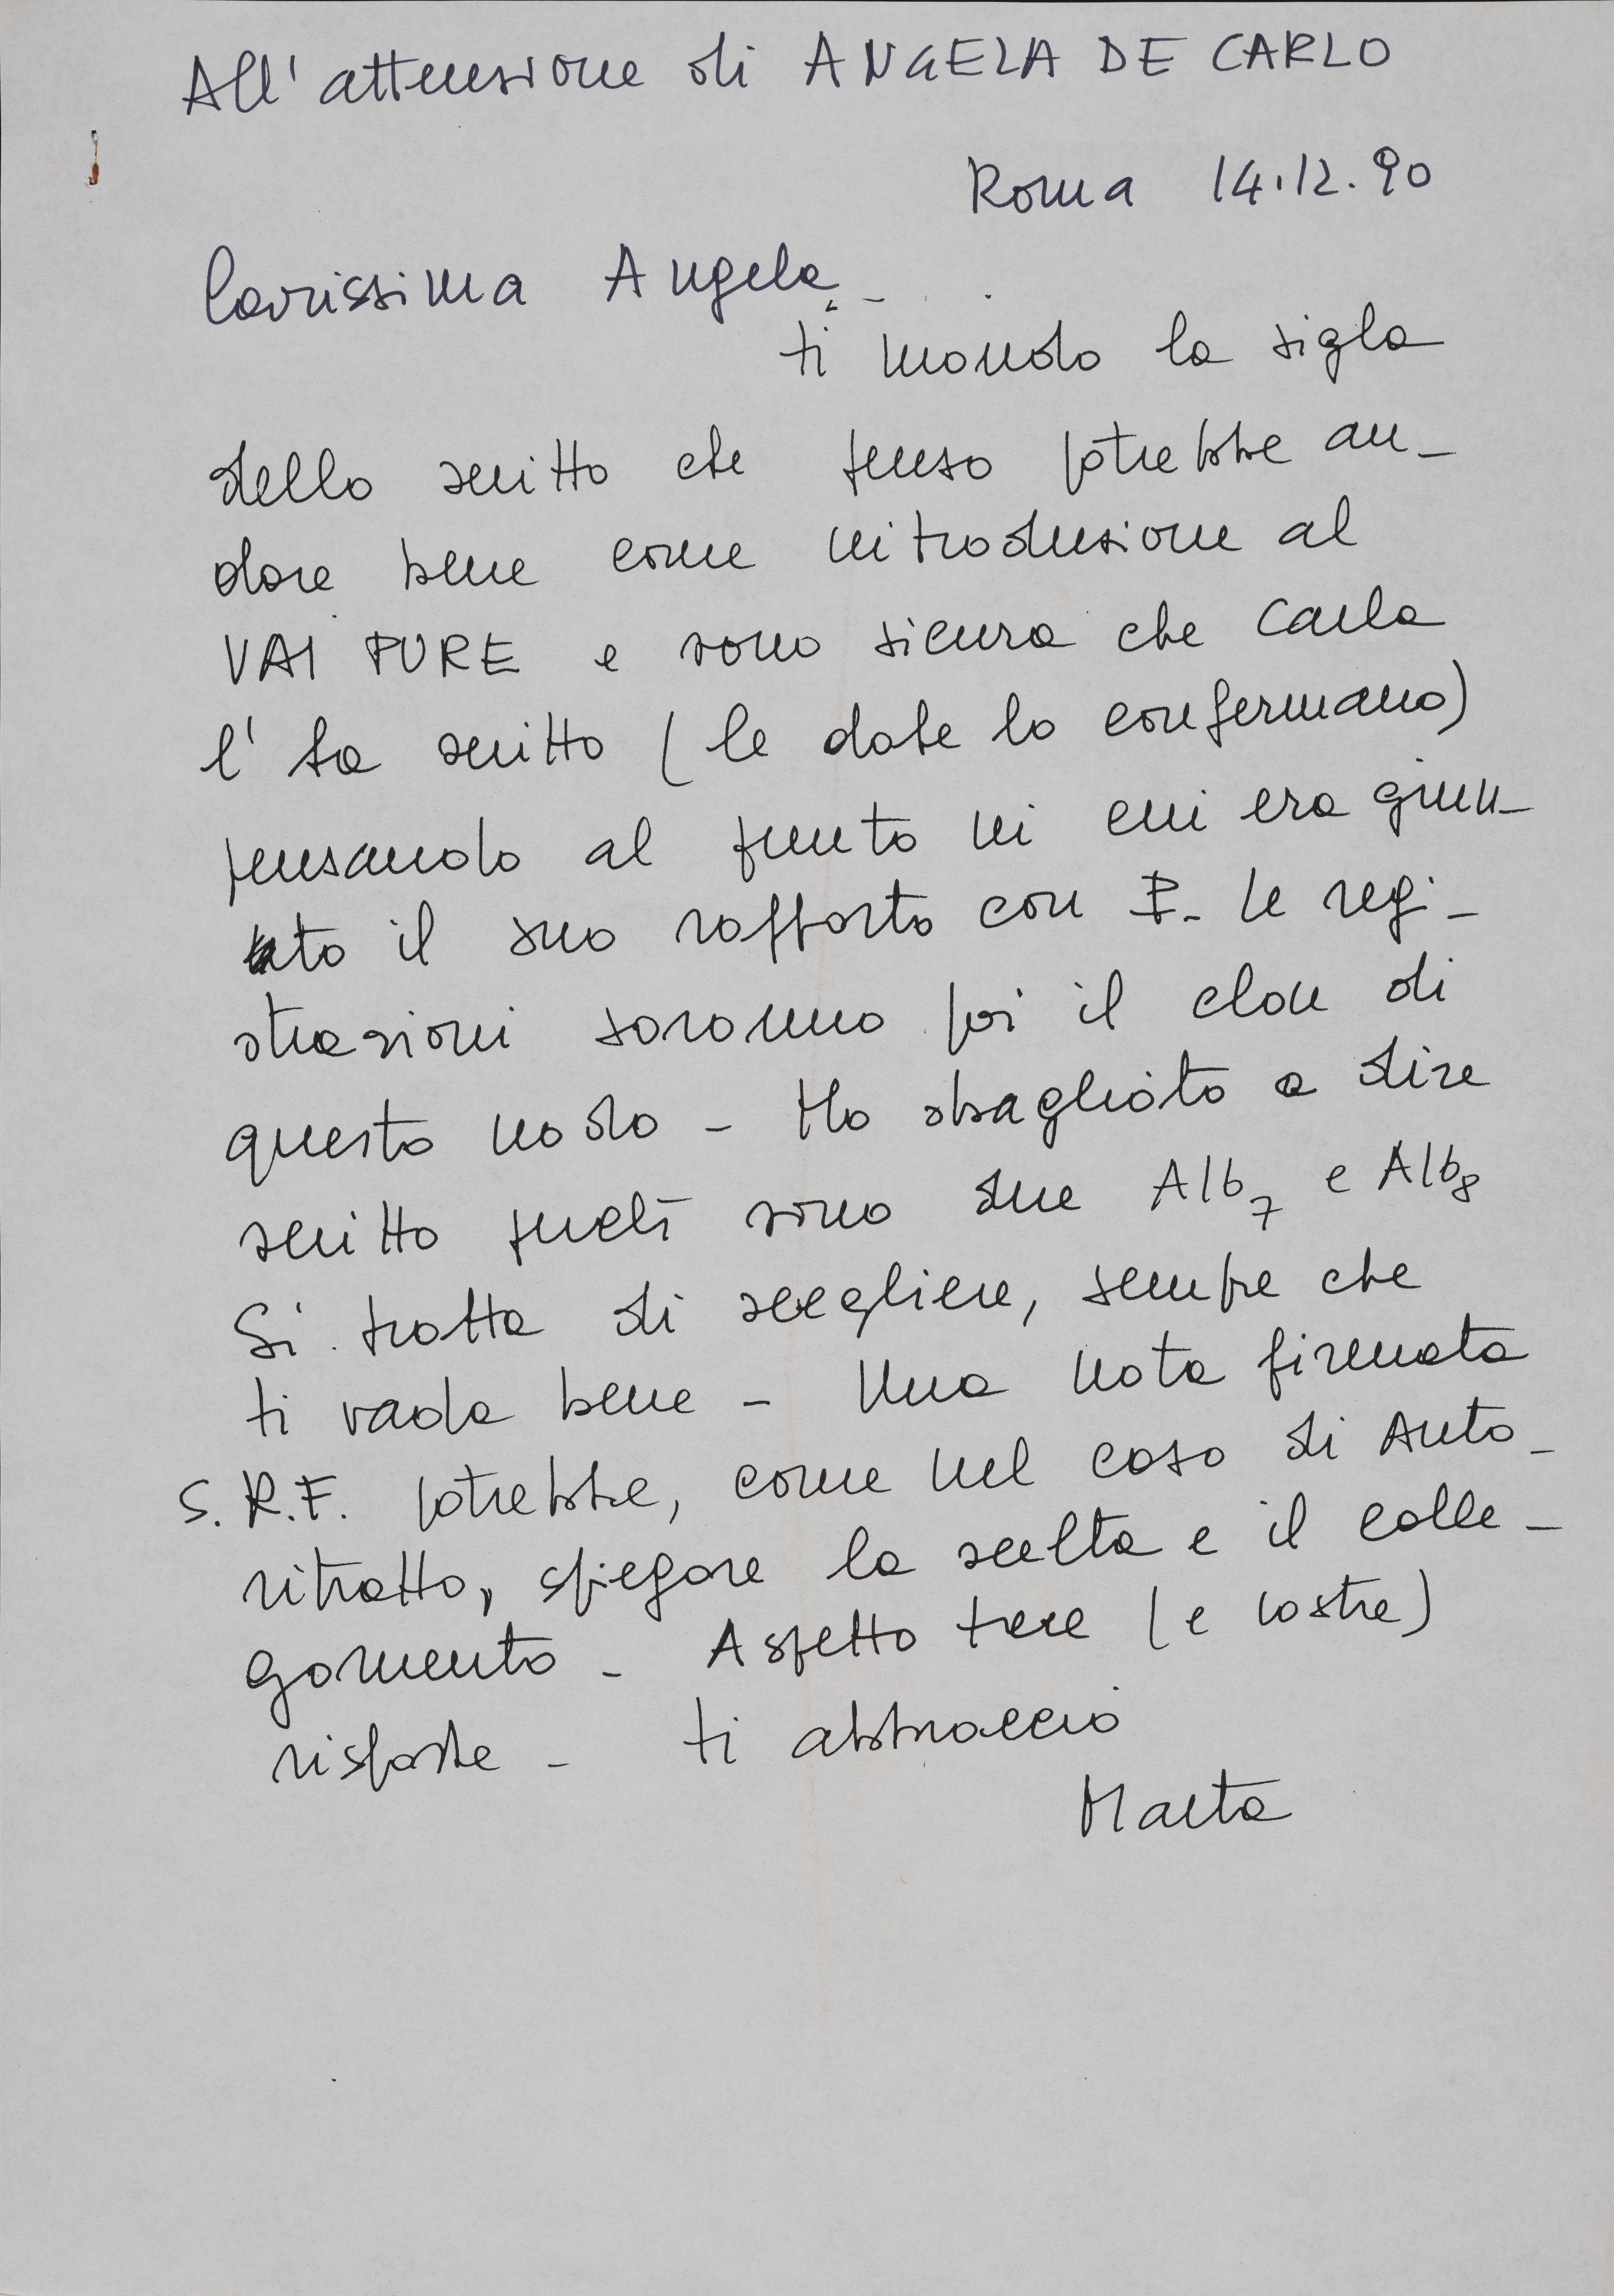 All'attenzione di ANGELA DE CARLO
Roma 14.12.90
Carissima Angela,
ti mando la sigla
dello scritto che penso potrebbe an-
dare bene come introduzione al
VAI PURE e sono sicura che Carla
l'ha scritto (le date lo confermano)
pensando al punto in cui era giun-
to il suo rapporto con P. Le regi-
strazioni saranno poi il clou di
questo nodo - Ho sbagliato a dire
scritto perché sono due Alb7 e Alb8
Si tratta di scegliere, sempre che
ti vada bene - Una nota firmata
S.R.F. potrebbe, come nel caso di Auto-
ritratto, spiegare la scelta e il colle-
gamento - Aspetto tue (e vostre)
risposte - ti abbraccio
Marta